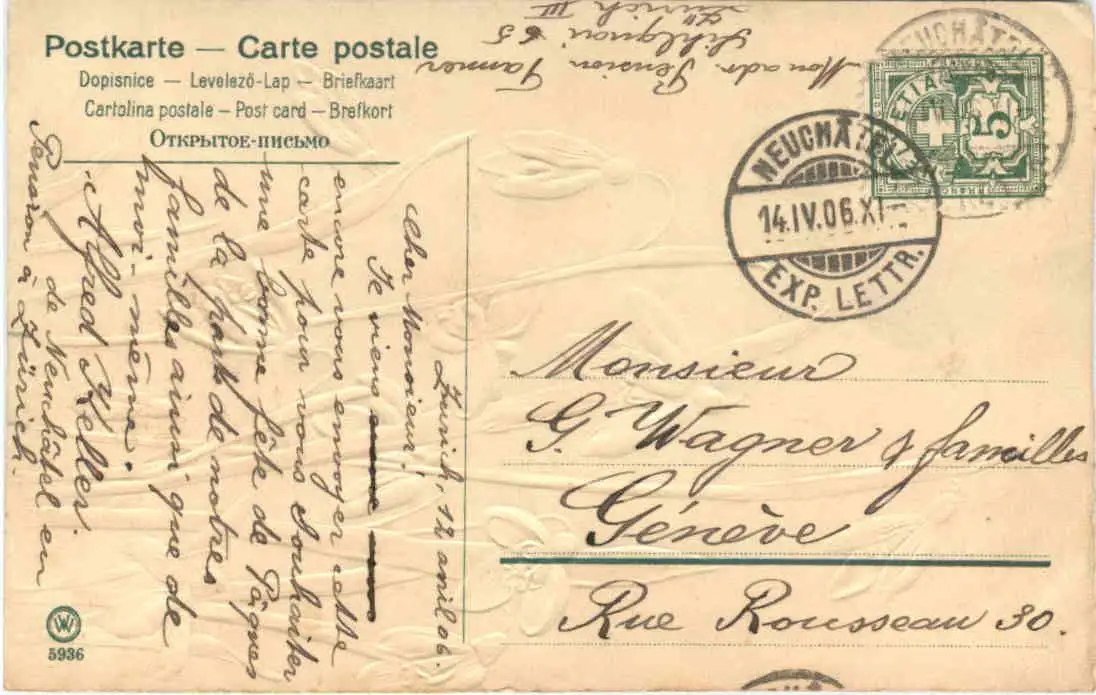 Postkarte — Carte postale
Dopisnice — Levelező-Lap — Briefkaart
Cartolina postale — Post card — Brefkort
Открытое-письмо
Mon adr. Pension Tanner
Sihlquai 65
Zürich III
NEUCHÂTEL
HELVETIA
FRANCO
5
NEUCHÂTEL
14.IV.06.XI–
EXP. LETTR.
Monsieur
G. Wagner & familles
Genève
Rue Rousseau 30.
Zürich, 12 avril 06.
Cher Monsieur!
Je viens
encore vous envoyer cette
carte pour vous souhaiter
une bonne fête de Pâques
de la part de notres
familles ainsi que de
moi-même.
Alfred Keller.
de Neuchâtel en
à Zürich.
W
5936